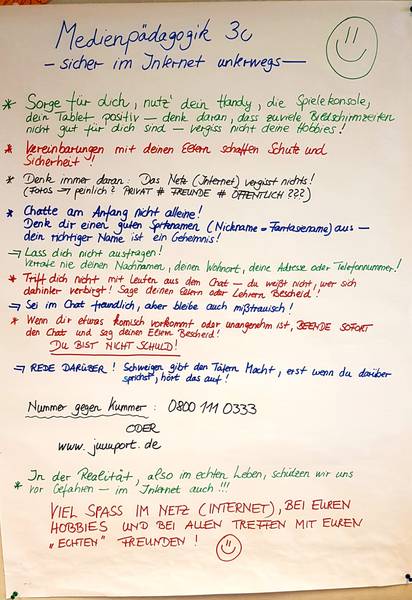 Medienpädagogik 3c
- sicher im Internet unterwegs -
* Sorge für dich, nutz' dein Handy, die Spielekonsole,
dein Tablet positiv - denk daran, dass zuviele Bildschirmzeiten
nicht gut für dich sind - vergiss nicht deine Hobbies!
* Vereinbarungen mit deinen Eltern schaffen Schutz und
Sicherheit!
* Denk immer daran: Das Netz (Internet) vergisst nichts!
(Fotos → peinlich? PRIVAT # FREUNDE # ÖFFENTLICH ???)
* Chatte am Anfang nicht alleine!
Denk dir einen guten Spitznamen (Nickname = Fantasename) aus -
dein richtiger Name ist ein Geheimnis!
→ Lass dich nicht ausfragen!
Verrate nie deinen Nachnamen, deinen Wohnort, deine Adresse oder Telefonnummer!
* Triff dich nicht mit Leuten aus dem Chat - du weißt nicht, wer sich
dahinter verbirgt! Sage deinen Eltern oder Lehrern Bescheid!
→ Sei im Chat freundlich, aber bleibe auch mißtrauisch!
* Wenn dir etwas komisch vorkommt oder unangenehm ist, BEENDE SOFORT
den Chat und sag deinen Eltern Bescheid!
DU BIST NICHT SCHULD!
→ REDE DARÜBER! Schweigen gibt den Tätern Macht, erst wenn du darüber
sprichst, hört das auf!
Nummer gegen Kummer: 0800 111 0333
ODER
www.juuuport.de
* In der Realität, also im echten Leben, schützen wir uns
vor Gefahren - im Internet auch!!!
VIEL SPASS IM NETZ (INTERNET), BEI EUREN
HOBBIES UND BEI ALLEN TREFFEN MIT EUREN
„ECHTEN" FREUNDEN!